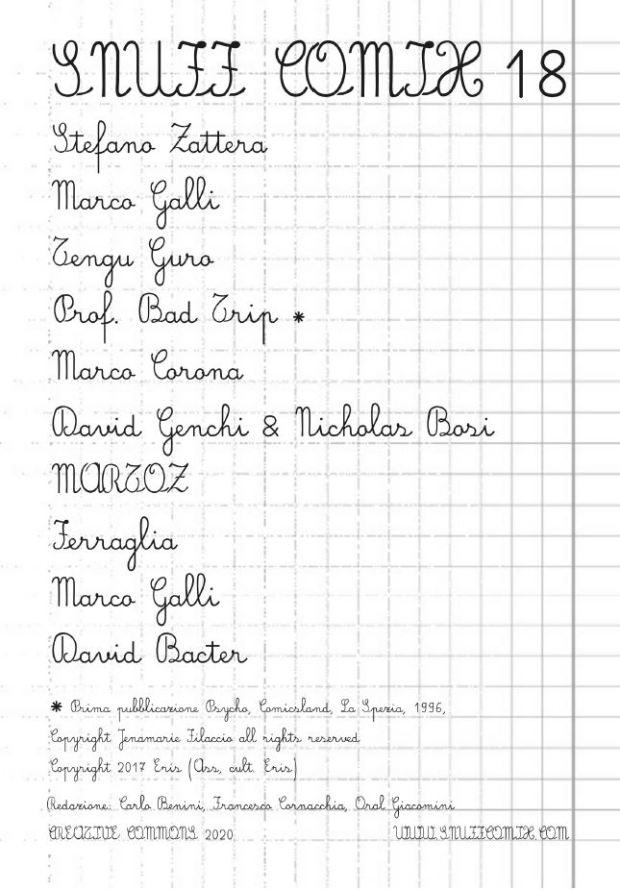 SNUFF COMIX 18
Stefano Zattera
Marco Galli
Tengu Guro
Prof. Bad Trip *
Marco Corona
David Genchi & Nicholas Bosi
MARTOZ
Ferraglia
Marco Galli
David Bacter
* Prima pubblicazione Psycho, Comicsland, La Spezia, 1996,
Copyright Jenamarie Filaccio all rights reserved
Copyright 2017 Eris (Ass. cult. Eris)
(Redazione: Carlo Benini, Francesca Cornacchia, Oral Giacomini
CREATIVE COMMONS 2020 WWW.SNUFFCOMIX.COM